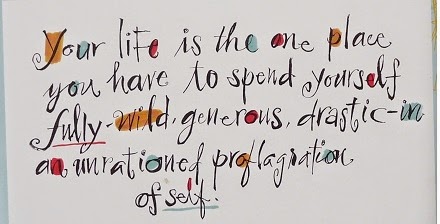 Your life is the one place
you have to spend yourself
fully-wild, generous, drastic-in
an unrationed proflagration
of self.